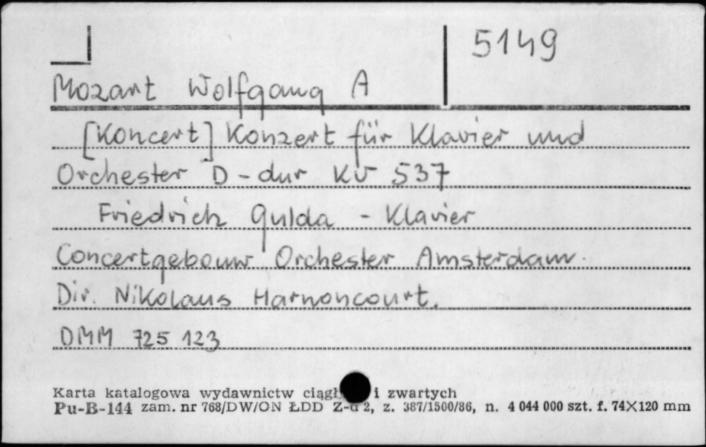 5149
Mozart Wolfgang A
[Koncert] Konzert für Klavier und
Orchester D-dur KV 537
Friedrich Gulda - Klavier
Concertgebouw Orchester Amsterdam.
Dir. Nikolaus Harnoncourt.
DMM 725 123
Karta katalogowa wydawnictw i zwartych
Pu-B-144 zam. nr 768/DW/ON ŁDD 2, z. 387/1500/86, n. 4 044 000 szt. f. 74X120 mm